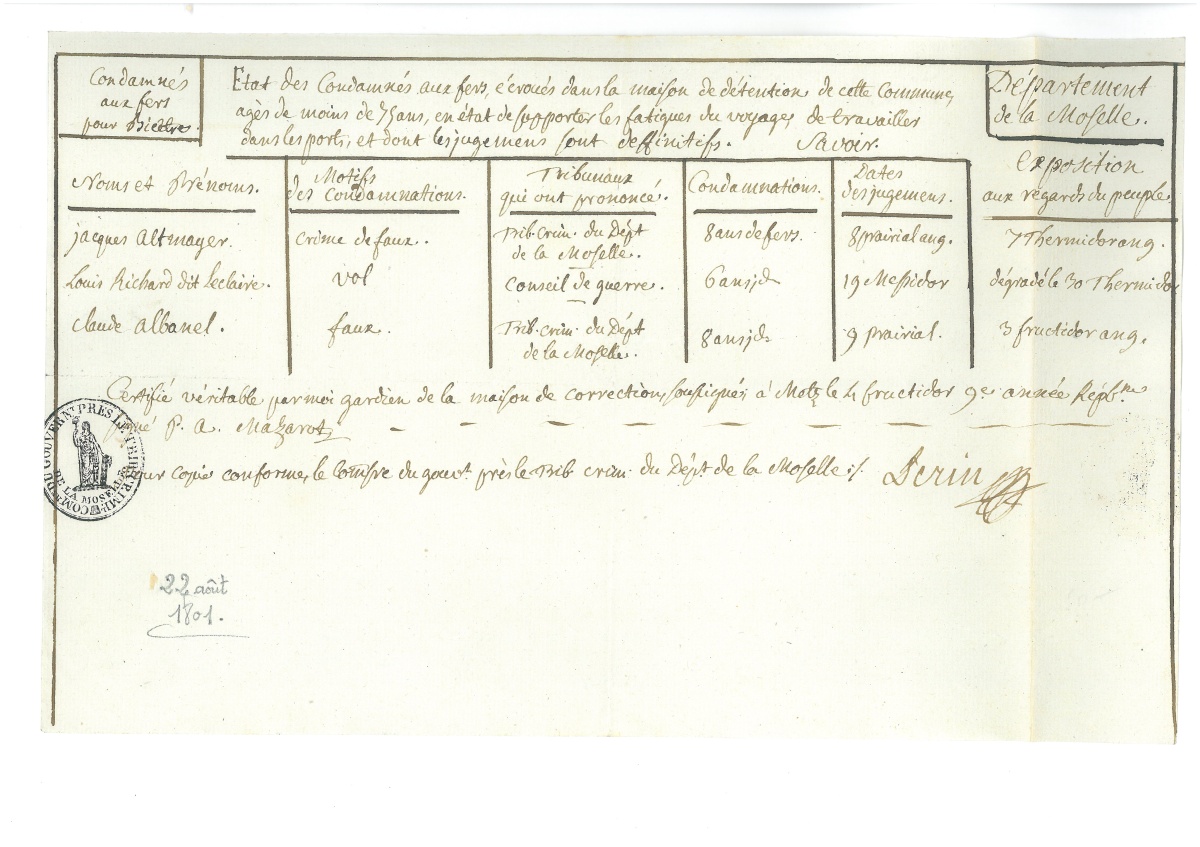 Condamnés
aux fers
pour Bicêtre.
Etat des Condamnés aux fers, écroués dans la maison de détention de cette Commune,
agés de moins de 75 ans, en état de supporter les fatigues du voyage, de travailler
dans les ports, et dont les jugemens sont deffinitifs. Savoir.
Département
de la Moselle.
Noms et Prénoms.
Motifs
des Condamnations.
Tribunaux
qui ont prononcé.
Condamnations.
Dates
des jugemens.
exposition
aux régards du peuple
jacques Altmayer. crime de faux. Trib. Crim. du Dépt
de la Moselle. 8 ans de fers. 8 prairial an 9. 7 Thermidor an 9.
Louis Richard dit Leclaire. vol Conseil de guerre. 6 ans jd. 19 Messidor dégradé le 30 Thermidor
Claude Albanel. faux. Trib. Crim. du Dépt
de la Moselle. 8 ans jd. 9 prairial. 3 fructidor an 9.
Certifié véritable par moi gardien de la maison de correction, soussigné, à Metz le 4 fructidor 9e année Répb.
signé P. A. Mazarot
pour copie conforme, le Comsre du gouvt. près le Trib Crim. du Dépt de la Moselle ./. Perin
COMre DU GOUVERNt PRES LE TRIB CRIM
DE LA MOSELLE
22 août
1801.